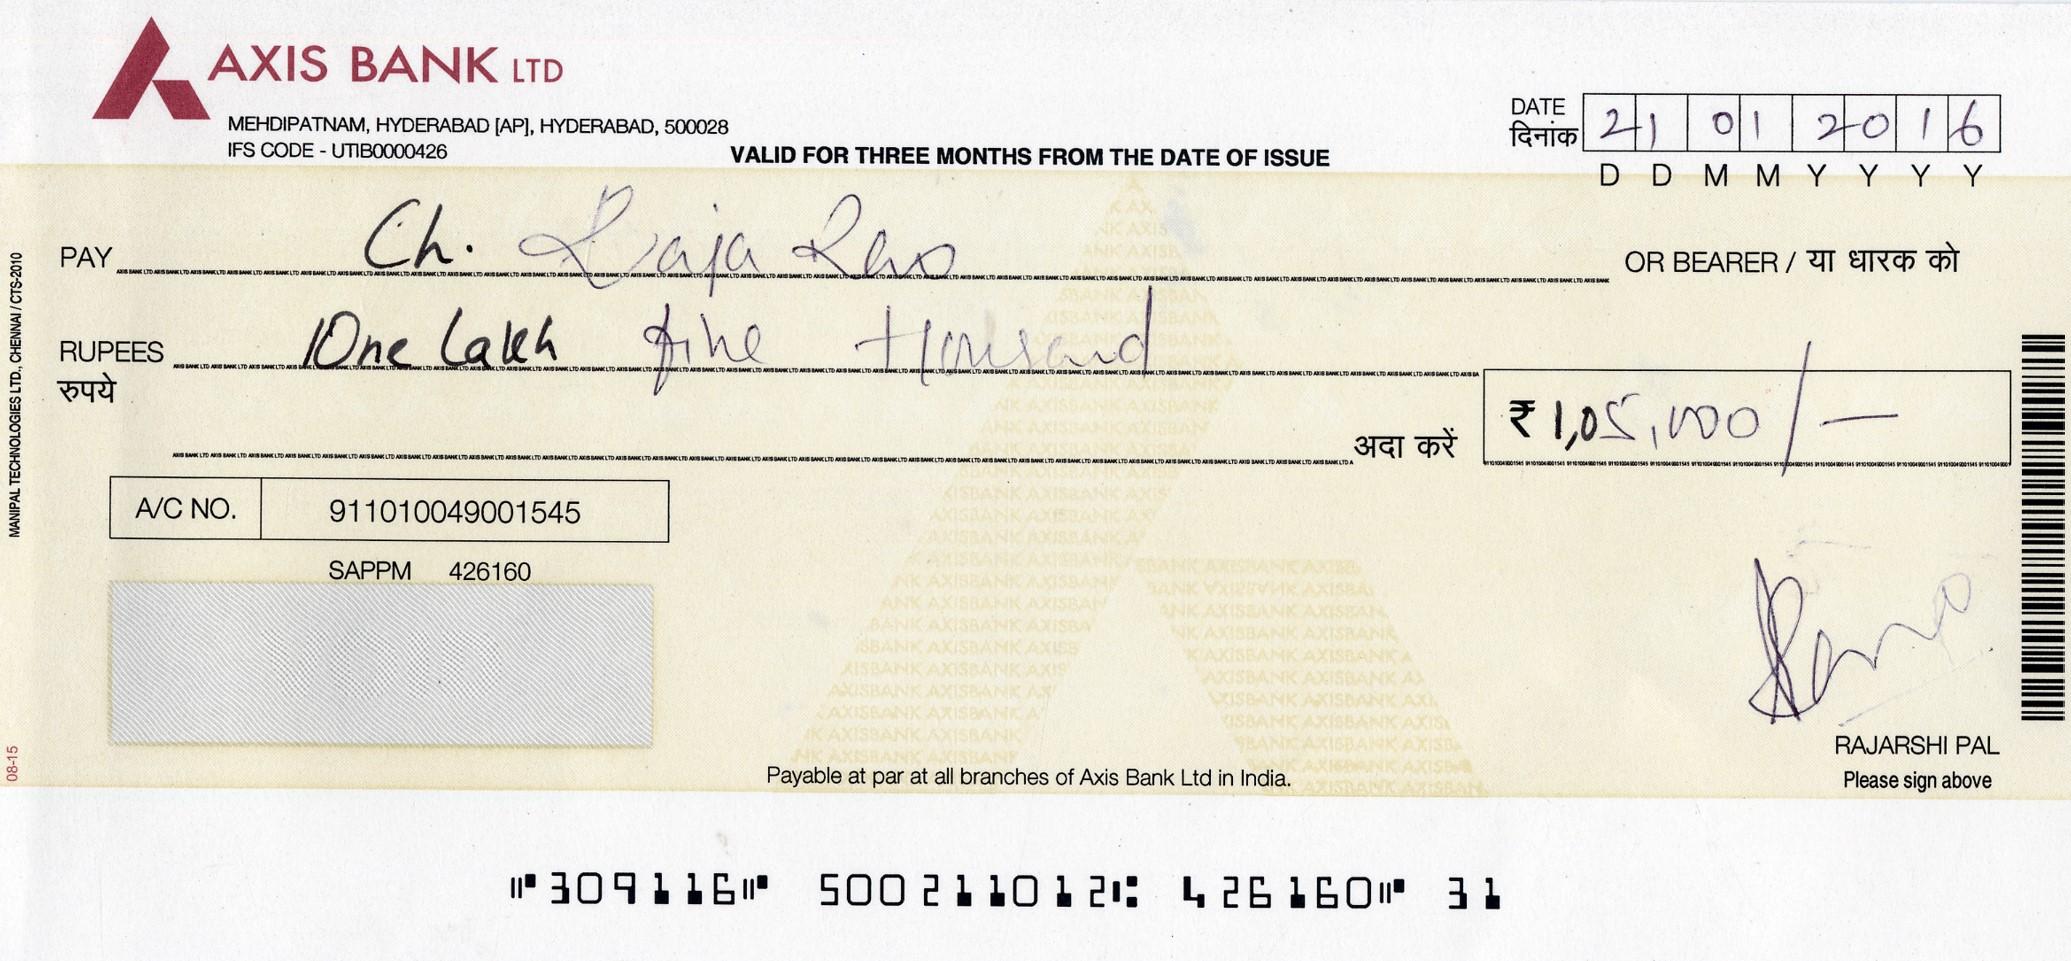 AXIS BANK LTD
MEHDIPATNAM, HYDERABAD [AP], HYDERABAD, 500028
IFS CODE - UTIB0000426
VALID FOR THREE MONTHS FROM THE DATE OF ISSUE
DATE
दिनांक 21 01 2016
D D M M Y Y Y Y
PAY Ch. Raja Rao OR BEARER / या धारक को
RUPEES One Lakh five Thousand
रुपये
अदा करें ₹ 1,05,000/-
A/C NO. 911010049001545
SAPPM 426160
RAJARSHI PAL
Please sign above
Payable at par at all branches of Axis Bank Ltd in India.
MANIPAL TECHNOLOGIES LTD., CHENNAI / CTS-2010
08-15
⑈309116⑈ 500211012⑆ 426160⑈ 31